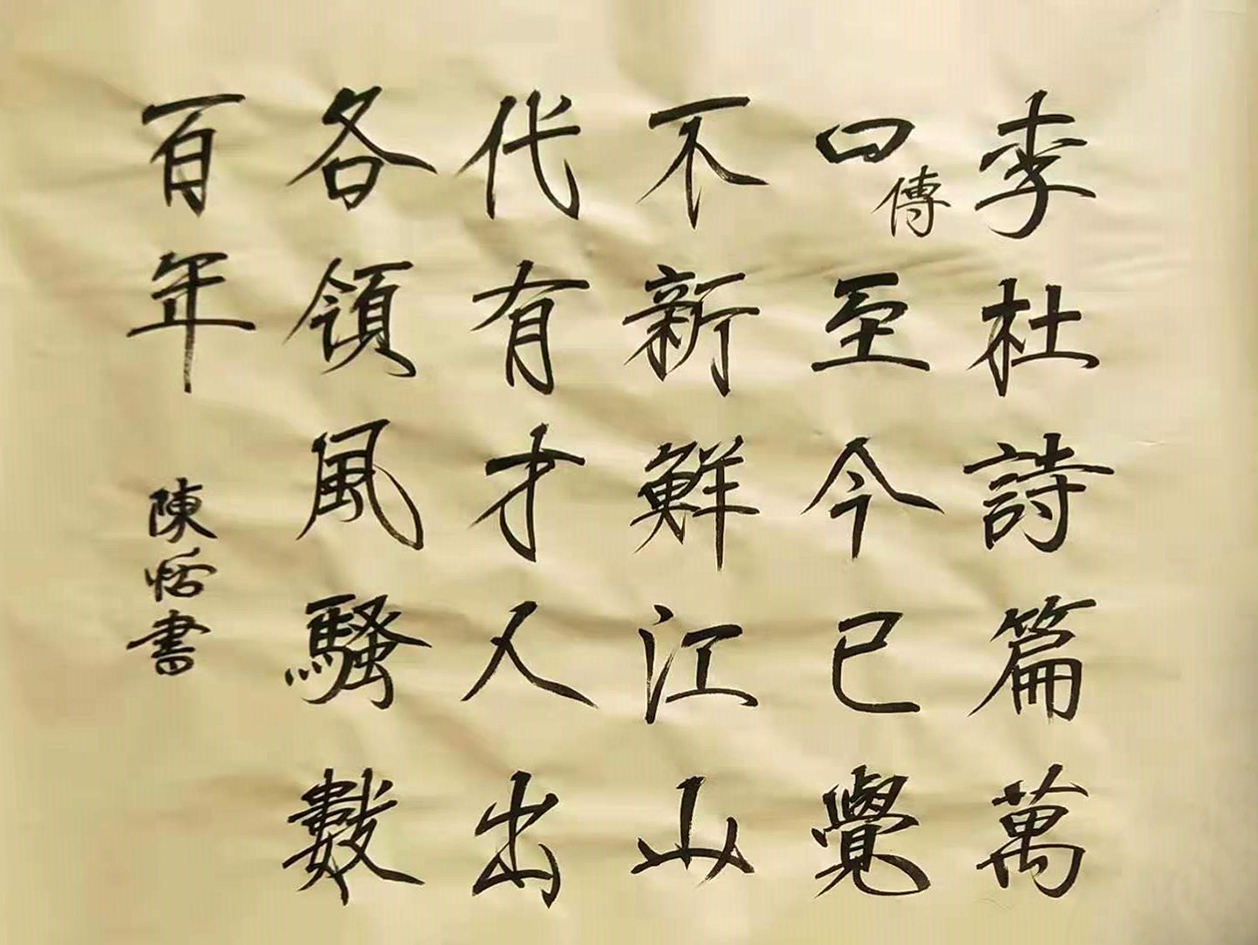 李杜詩篇萬
口傳至今已覺
不新鮮江山
代有才人出
各領風騷數
百年
陳恬書